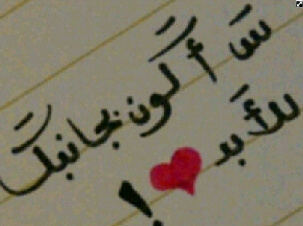 سَأكون بجانبكَ
للأَبد !